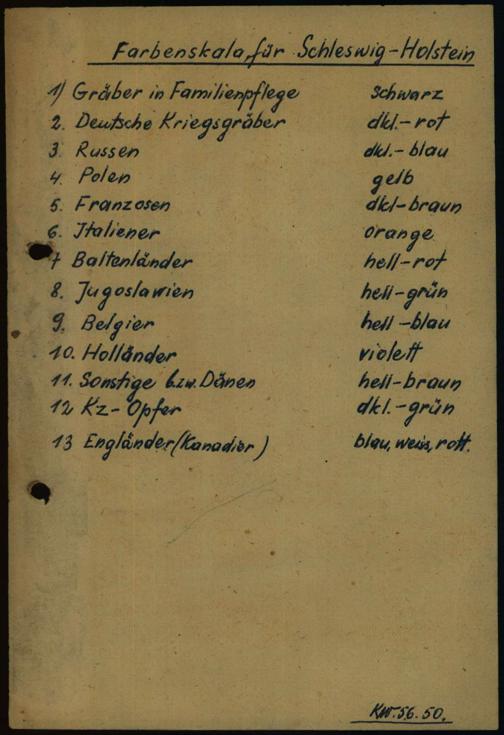 Farbenskala für Schleswig-Holstein
1) Gräber in Familienpflege schwarz
2. Deutsche Kriegsgräber dkl.-rot
3. Russen dkl.-blau
4. Polen gelb
5. Franzosen dkl-braun
6. Italiener orange
7 Baltenländer hell-rot
8. Jugoslawien hell-grün
9. Belgier hell-blau
10. Holländer violett
11. Sonstige bzw. Dänen hell-braun
12 Kz-Opfer dkl.-grün
13 Engländer (Kanadier) blau, weiss, rott.
5.6.50.